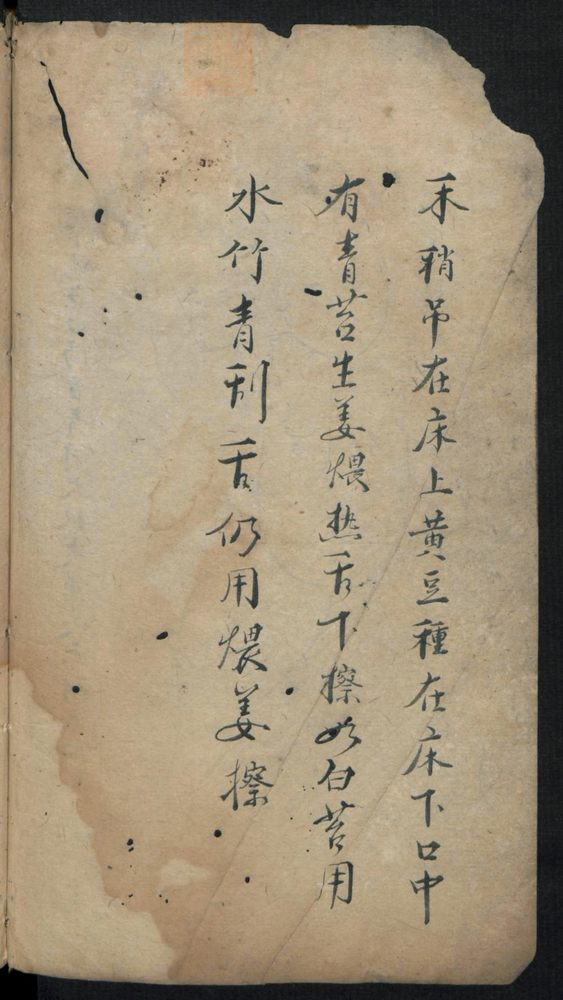 禾稍吊在床上黄豆種在床下口中
有青苔生姜煨热舌下擦如白苔用
水竹青刮舌仍用煨姜擦